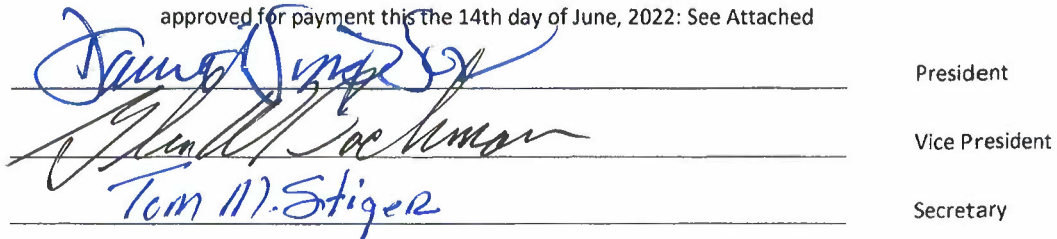 approved for payment this the 14th day of June, 2022: See Attached
President
Vice President
Tom M. Stiger Secretary